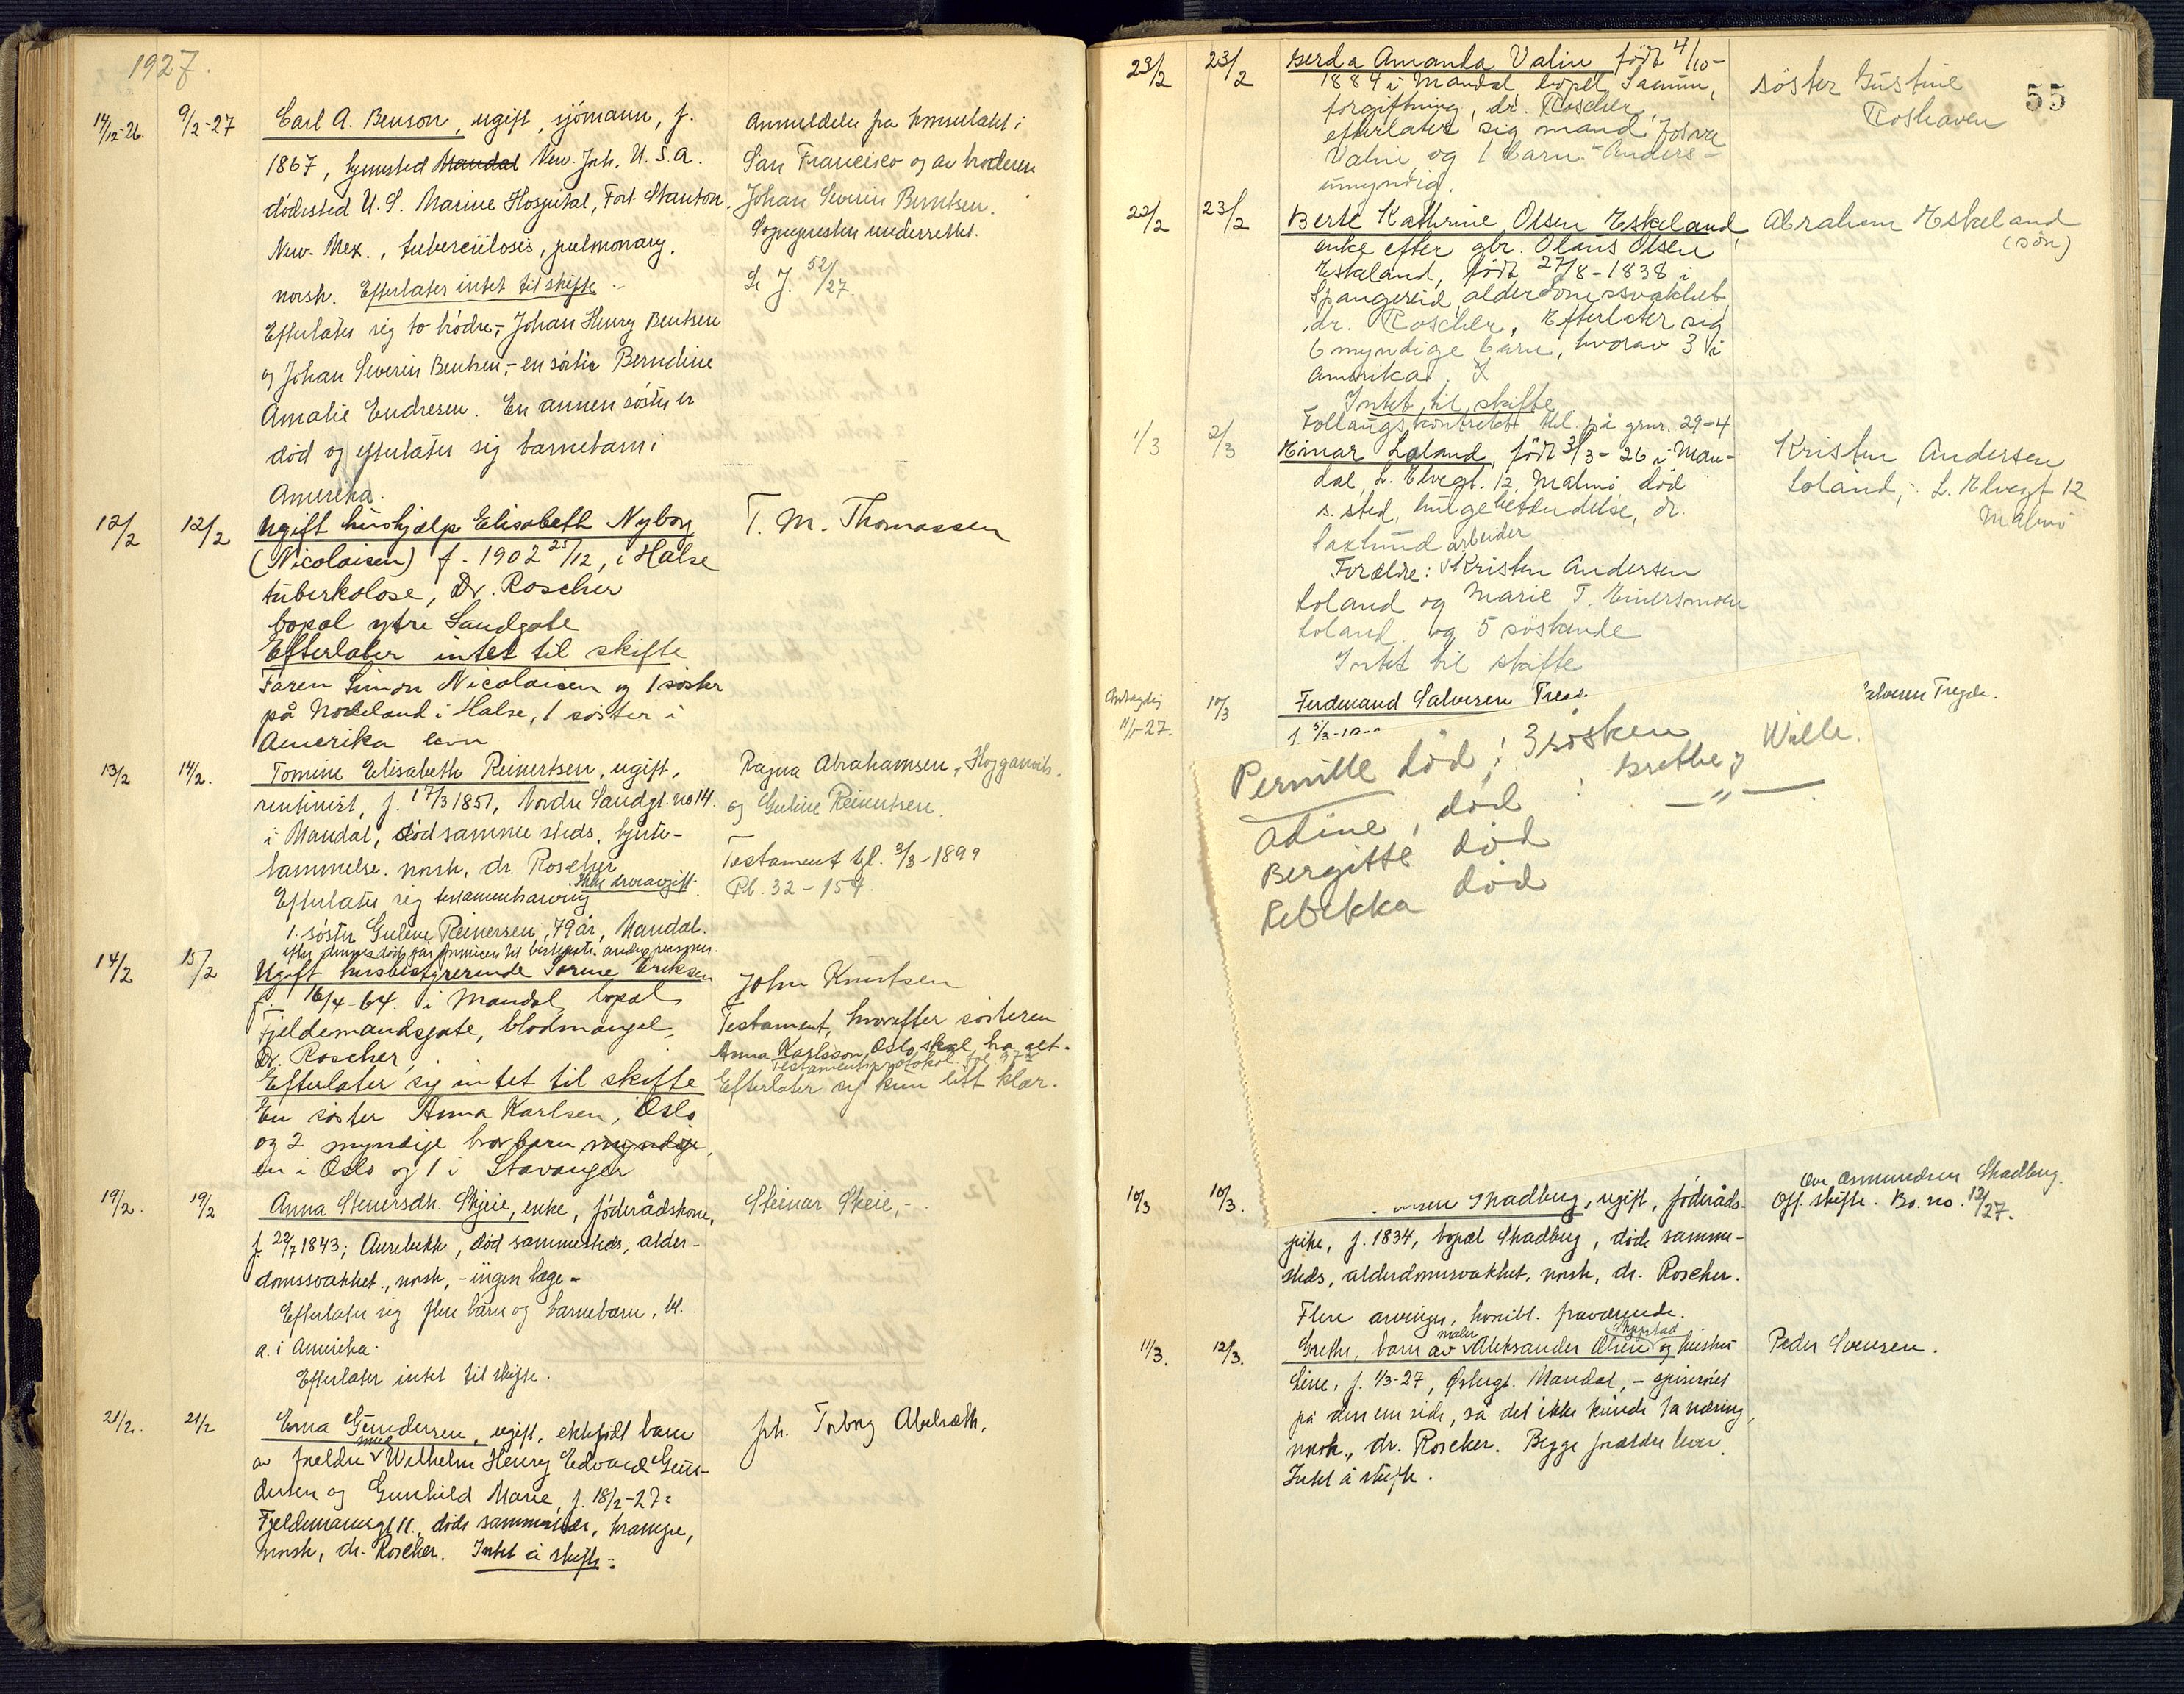 1927.
14/12-26. 9/2-27 Carl A. Benson, ugift, sjömann, f.
1867, hjemsted Mandal New. Joh. U.S.A.
dödssted U.S. Marine Hospital, Fort Stanton,
New-Mex., tuberculosis, pulmonary.
norsk. Efterlater intet til skifte.
Efterlater sig to brödre,- Johan Henry Bentsen
og Johan Severin Bentsen,- en söster Berndine
Amalie Endresen. En annen söster er
död og efterlater sig barnebarn i
Amerika.
Anmeldelse fra konsulatet i
San Francisco og av broderen
Johan Severin Berntsen.
Sognepresten underrettet.
Se J. 52/27.
12/2 12/2 Ugift hushjælp Elisabeth Nyborg
(Nicolaisen) f. 1902 25/12, i Halse
tuberkolose, Dr. Roscher
bopæl ytre Sandgate
Efterlater intet til skifte
Faren Simon Nicolaisen og 1 söster
på Nodeland i Halse, 1 söster i
Amerika
T. M. Thomassen
13/2 14/2. Tomine Elisabeth Reinertsen, ugift,
rentinist, f. 17/3 1851, Nordre Sandgt. no 14.
i Mandal, död samme steds, hjerte-
lammelse. norsk, dr. Roscher
Ikke arveavgift.
Efterlater sig testamentsarving
1. söster Guline Reinersen, 79 år, Mandal.
Ragna Abrahamsen, Högganvik.
og Guline Reinertsen.
Testament tgl. 3/3-1899
Pb. 32-154.
14/2 15/2 Ugift husbestyrerinde Sorine Eriksen
f. 16/4-64. i Mandal, bopæl
Fjeldemandsgate, blodmangel,
Dr. Roscher,
Efterlater sig intet til skifte
En söster Anna Karlsen, Oslo
og 2 myndige brorbarn myndige,
en i Oslo og 1 i Stavanger
John Knutsen
Testament, hvorefter sösteren
Anna Karlsson, Oslo skal ha alt.
Testamentsprotokol fol 97
Efterlater sig kun litt klær.
19/2. 19/2 Anna Stenersdtr. Skjeie, enke, föderådskone,
f. 22/7 1843, Aurebekk, död sammesteds, alder-
domssvakhet., norsk, - ingen læge -
Efterlater sig flere barn og barnebarn, bl.
a. i Amerika.
Efterlater intet til skifte.
Steinar Skeie,-
21/2. 21/2 Erna Gundersen, ugift, ektefödt barn
av foreldre smed Wilhelm Henry Edvard Gun-
dersen og Gunhild Marie, f. 18/2-27
Fjeldmansgt 11., döde sammesteds, krampe,
norsk, dr. Roscher. Intet å skifte.
frk. Torborg Abelseth.
55
23/2 23/2 Gerda Amanda Valine född 4/10-
1884 i Mandal, bopel Sanum,
forgiftning, dr. Roscher,
efterlater sig mand
Valine og 1 barn - Anders -
umyndig.
söster Gustine
Roshaven
22/2 23/2 Berte Kathrine Olsen Eskeland,
enke efter gbr. Olaus Olsen
Eskeland, född 27/8-1838 i
Spangereid, alderdomssvakhet
dr. Roscher, Efterlater sig
6 myndige barn, hvorav 3 i
Amerika.
Intet til skifte
Follaugskontrakt tgl. på gnr. 29-4
Abraham Eskeland
(sön)
1/3 2/3 Einar Loland, född 3/3-26 i Man-
dal, L. Elvegt. 12, Malmö död
s. sted, lungebetændelse, dr.
Saxlund
Forældre: arbeider Kristen Andersen
Loland og Marie T. Einersmoen
Loland. og 5 söskende
Intet til skifte
Kristen Andersen
Loland, L. Elvegt 12
Malmö
11/1-27. 10/3 Ferdinand Salvesen
Salvesen Tregde.
Pernille död; 3 sösken
Adine, död
Bergitte död
Rebekka död
Grethe og Wille.
10/3 10/3. Skadberg, ugift, föderåds-
pike, f. 1834, bopæl Skadberg, döde samme-
steds, alderdomssvakhet, norsk, dr. Roscher.
Flere arvinger, hvoribl. fraværende.
Ove Asmundsen Skadberg.
Off. skifte. Bo. no. 12/27.
11/3. 12/3. Grethe, barn av maler Aleksander Olsen Skjerstad og hustru
Lisse, f. 1/3-27, Östergt. Mandal, - spiserörert
på den ene side, så det ikke kunde ta næring,
norsk, dr. Roscher. Begge forældre lever.
Intet å skifte.
Peder Svensen.